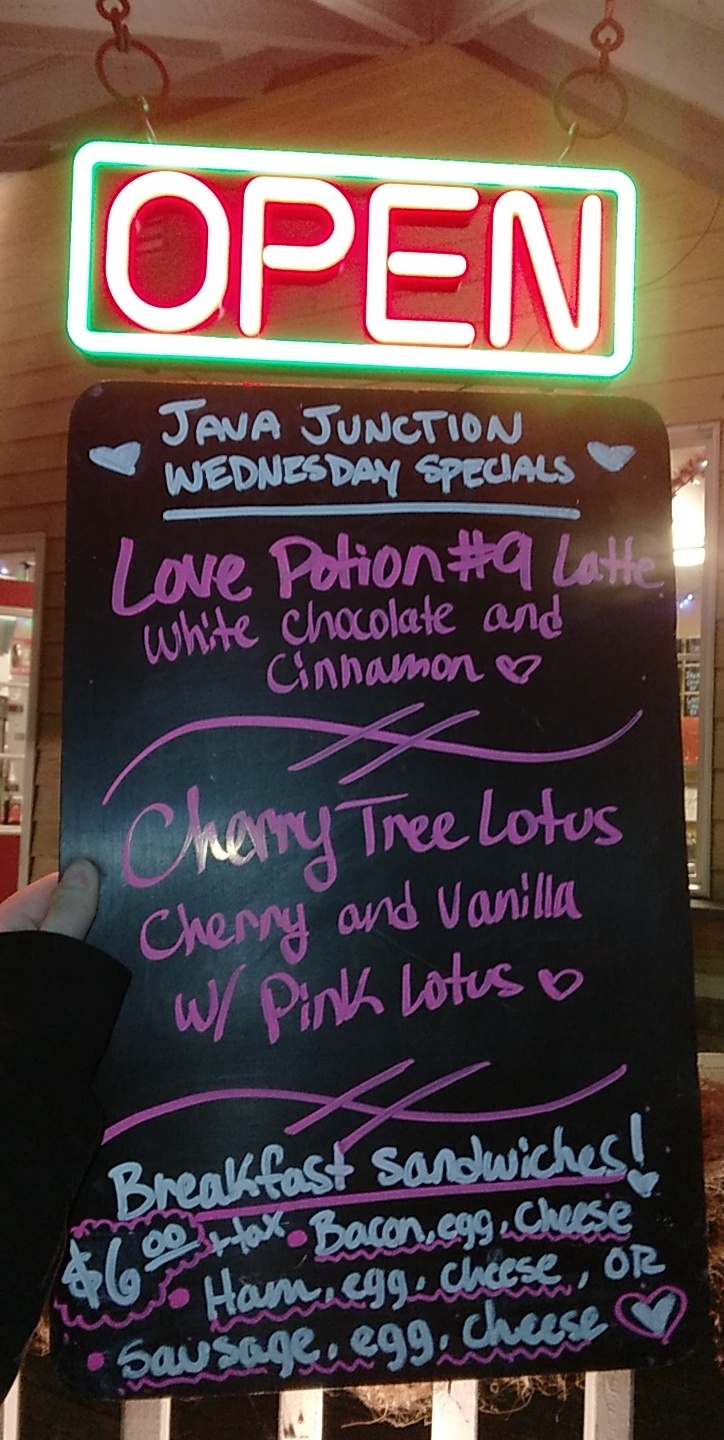 OPEN
JAVA JUNCTION
WEDNESDAY SPECIALS
Love Potion #9 Latte
White chocolate and
Cinnamon
Cherry Tree Lotus
Cherry and Vanilla
W/ Pink Lotus
Breakfast sandwiches!
$6.00 + tax • Bacon, egg, Cheese
• Ham, egg, cheese, OR
• Sausage, egg, cheese